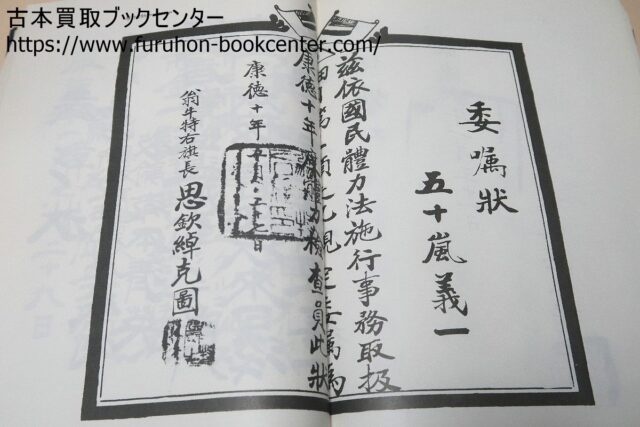 古本買取ブックセンター
https://www.furuhon-bookcenter.com/
委嘱狀
五十嵐義一
茲依國民體力法施行事務取扱
第一項之規定委嘱為
康德十年 體力檢查員此狀
康德十年 月 日
翁牛特右旗長 思欽綽克圖